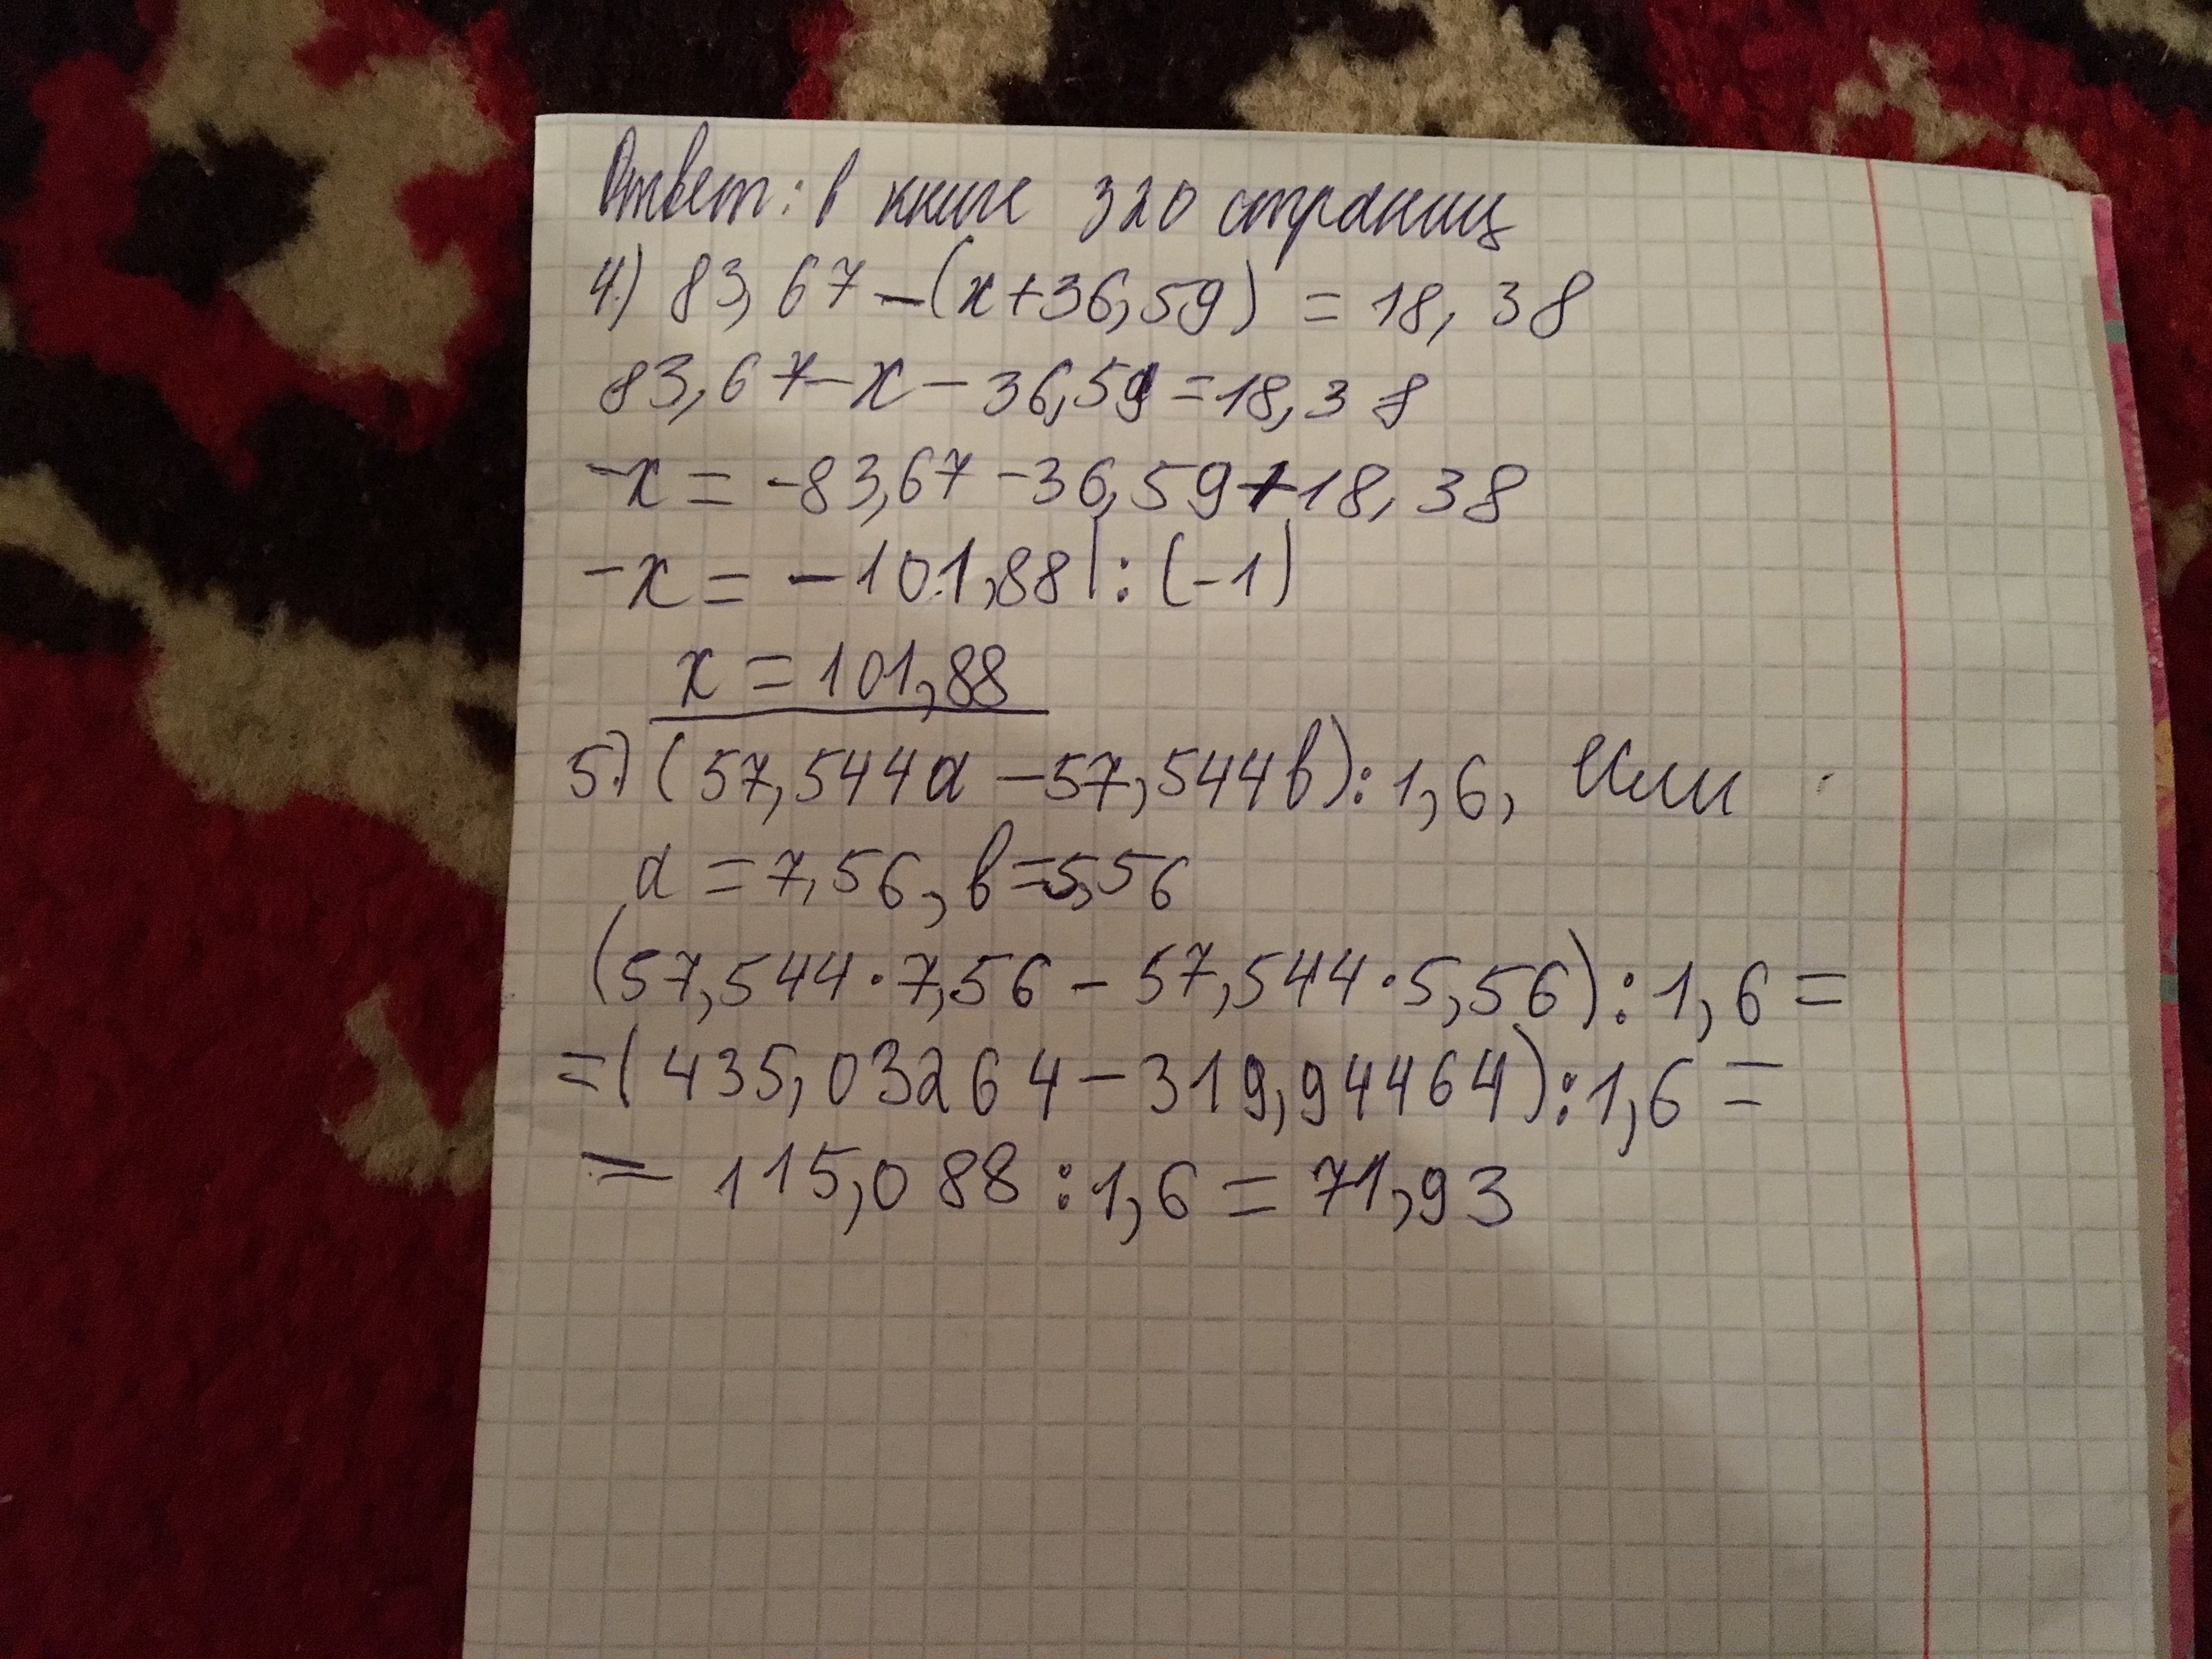 Ответ: в книге 320 страниц
4.) 83,67-(x+36,59) = 18,38
83,67-x-36,59=18,38
-x = -83,67-36,59+18,38
-x = -101,88|:(-1)
x = 101,88
5.) (57,544a-57,544b):1,6, Или
a=7,56, b=5,56
(57,544·7,56-57,544·5,56):1,6=
=(435,03264-319,94464):1,6=
= 115,088:1,6=71,93